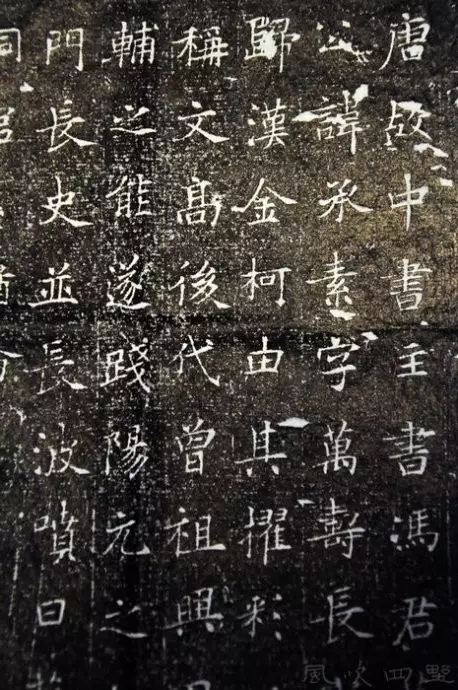 唐故中書主書馮君
公諱承素字萬壽長
歸漢金柯由其擢彩
稱文高後代曾祖興
輔之能遂踐陽元之
門長史並長波噴日
風吹四野